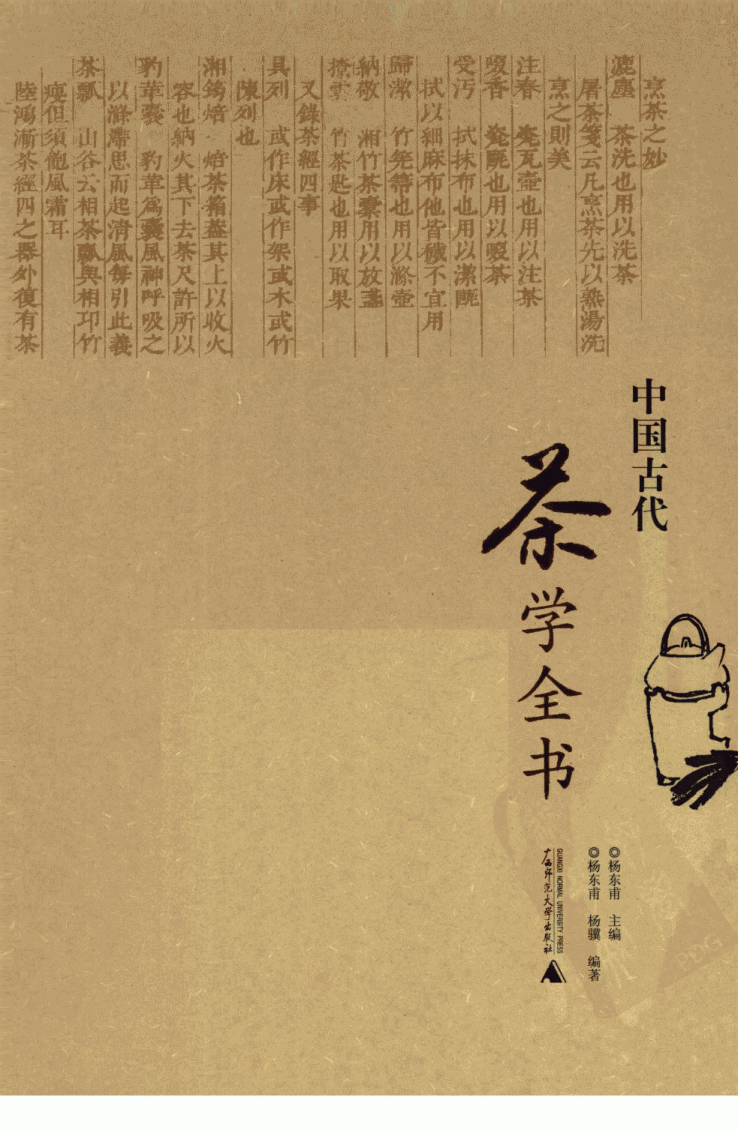 烹茶之妙
漉塵　茶洗也用以洗茶
屠茶箋云凡烹茶先以熱湯洗
烹之則美
注春　甆瓦壺也用以注茶
啜香　甆甌也用以啜茶
受汚　拭抹布也用以潔甌
拭以細麻布他皆穢不宜用
歸潔　竹筅箒也用以滌壺
納敬　湘竹茶橐用以放盞
撩雲　竹茶匙也用以取果
又錄茶經四事
具列　或作床或作架或木或竹
陳列也
湘筠焙　焙茶箱蓋其上以收火
容也納火其下去茶尺許所以
豹革囊　豹革為囊風神呼吸之
以滌滯思而起清風每引此義
茶瓢　山谷云相茶瓢與相卭竹
瘦但須飽風霜耳
陸鴻漸茶經四之器外復有茶
中国古代
茶学全书
◎杨东甫　主编
◎杨东甫　杨骥　编著
GUANGXI NORMAL UNIVERSITY PRESS
广西师范大学出版社